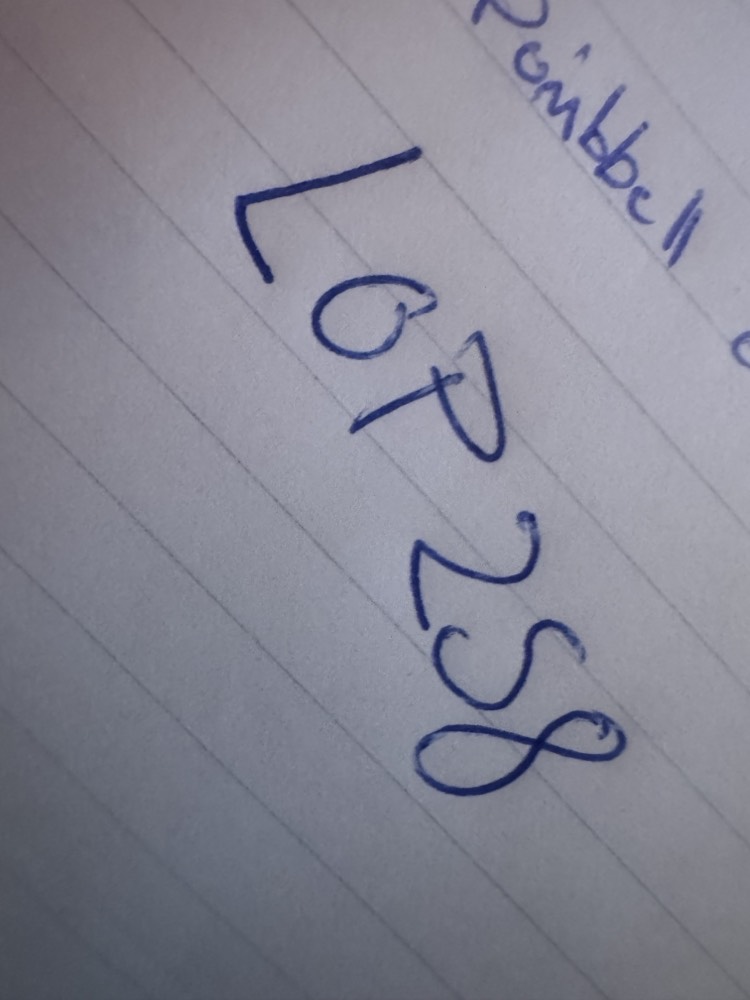 Pointbbell
LOP 258